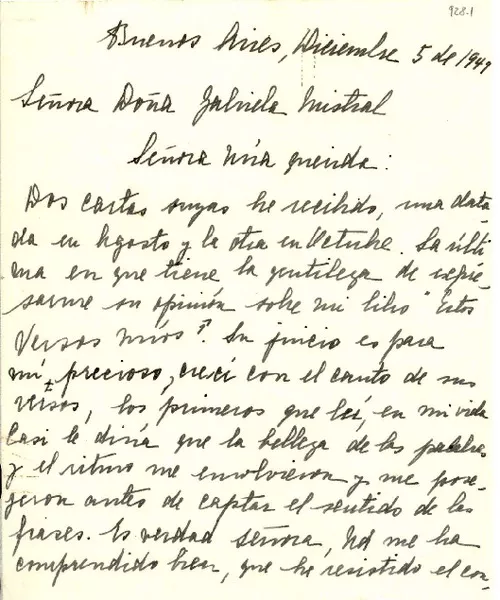 928-1
Buenos Aires, Diciembre 5 de 1949
Señora Doña Gabriela Mistral
Señora mía querida:
Dos cartas suyas he recibido, una data-
da en Agosto y la otra en Octubre. La últi
ma en que tiene la gentileza de expre-
sarme su opinión sobre mi libro "Estos
Versos míos". Su juicio es para
mí precioso, crecí con el canto de sus
versos, los primeros que leí, en mi vida
Casi le diría que la belleza de las palabras
y el ritmo me envolvieron y me pose-
yeron antes de captar el sentido de las
frases. Es verdad Señora, Ud me ha
comprendido bien, que he resistido el con-